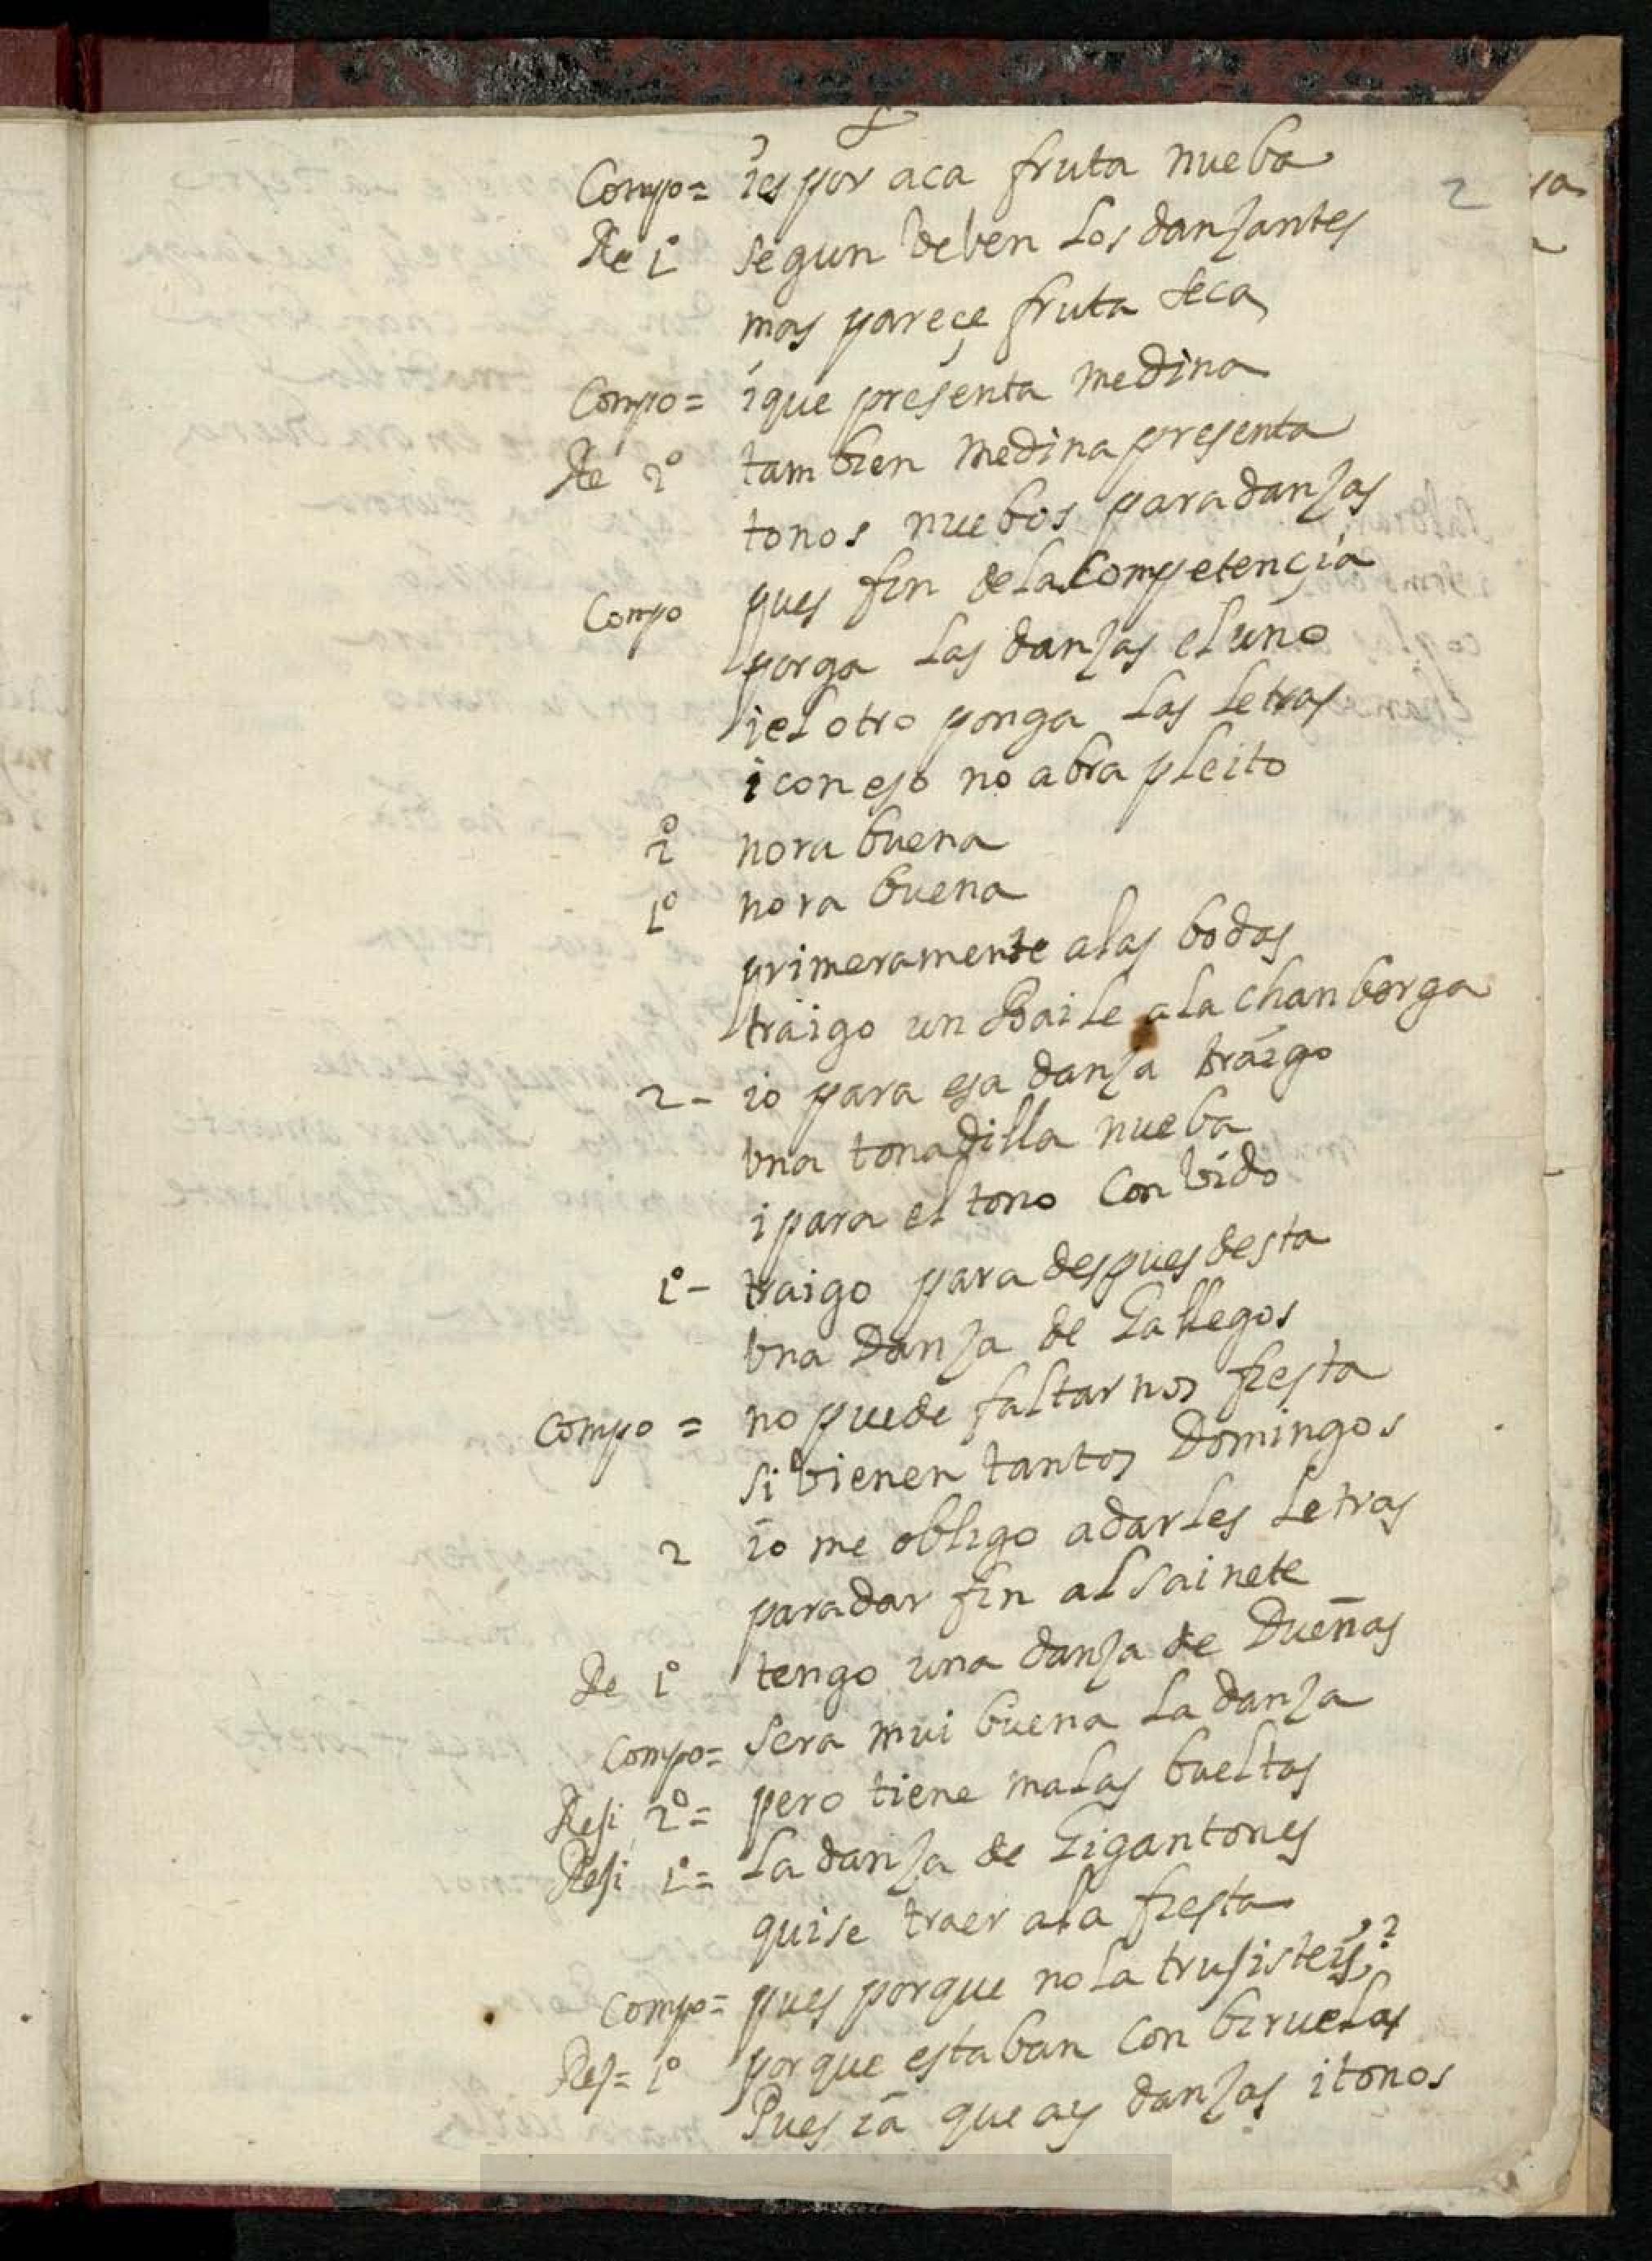 Compo= ies por aca fruta nueba
2
Re 1º segun deben los danzantes
mas pareçe fruta seca
Compo= i que presenta medina
Re 2º tam bien medina presenta
tonos nuebos para danzas
Compo pues fin de la competençia
ponga las danzas el uno
i el otro ponga las letras
i con eso no abra pleito
2º nora buena
1º nora buena
primeramente a las bodas
traigo un Baile a la chanberga
2- io para esa danza traigo
vna tonadilla nueba
i para el tono Conbido
1º- traigo para despues desta
vna Danza de Gallegos
compo = no puede faltarnos fiesta
si vienen tantos Domingos
2 io me obligo a darles letras
para dar fin al sainete
Re 1º tengo una danza de Dueñas
Compo= sera mui buena la danza
Resi 2º= pero tiene malas bueltas
Resi 1º= La danza de Gigantones
quise traer a la fiesta
Compo= pues porque no la trusisteis?
Res= 1º porque estaban con biruelas
Pues ia que ay danzas i tonos